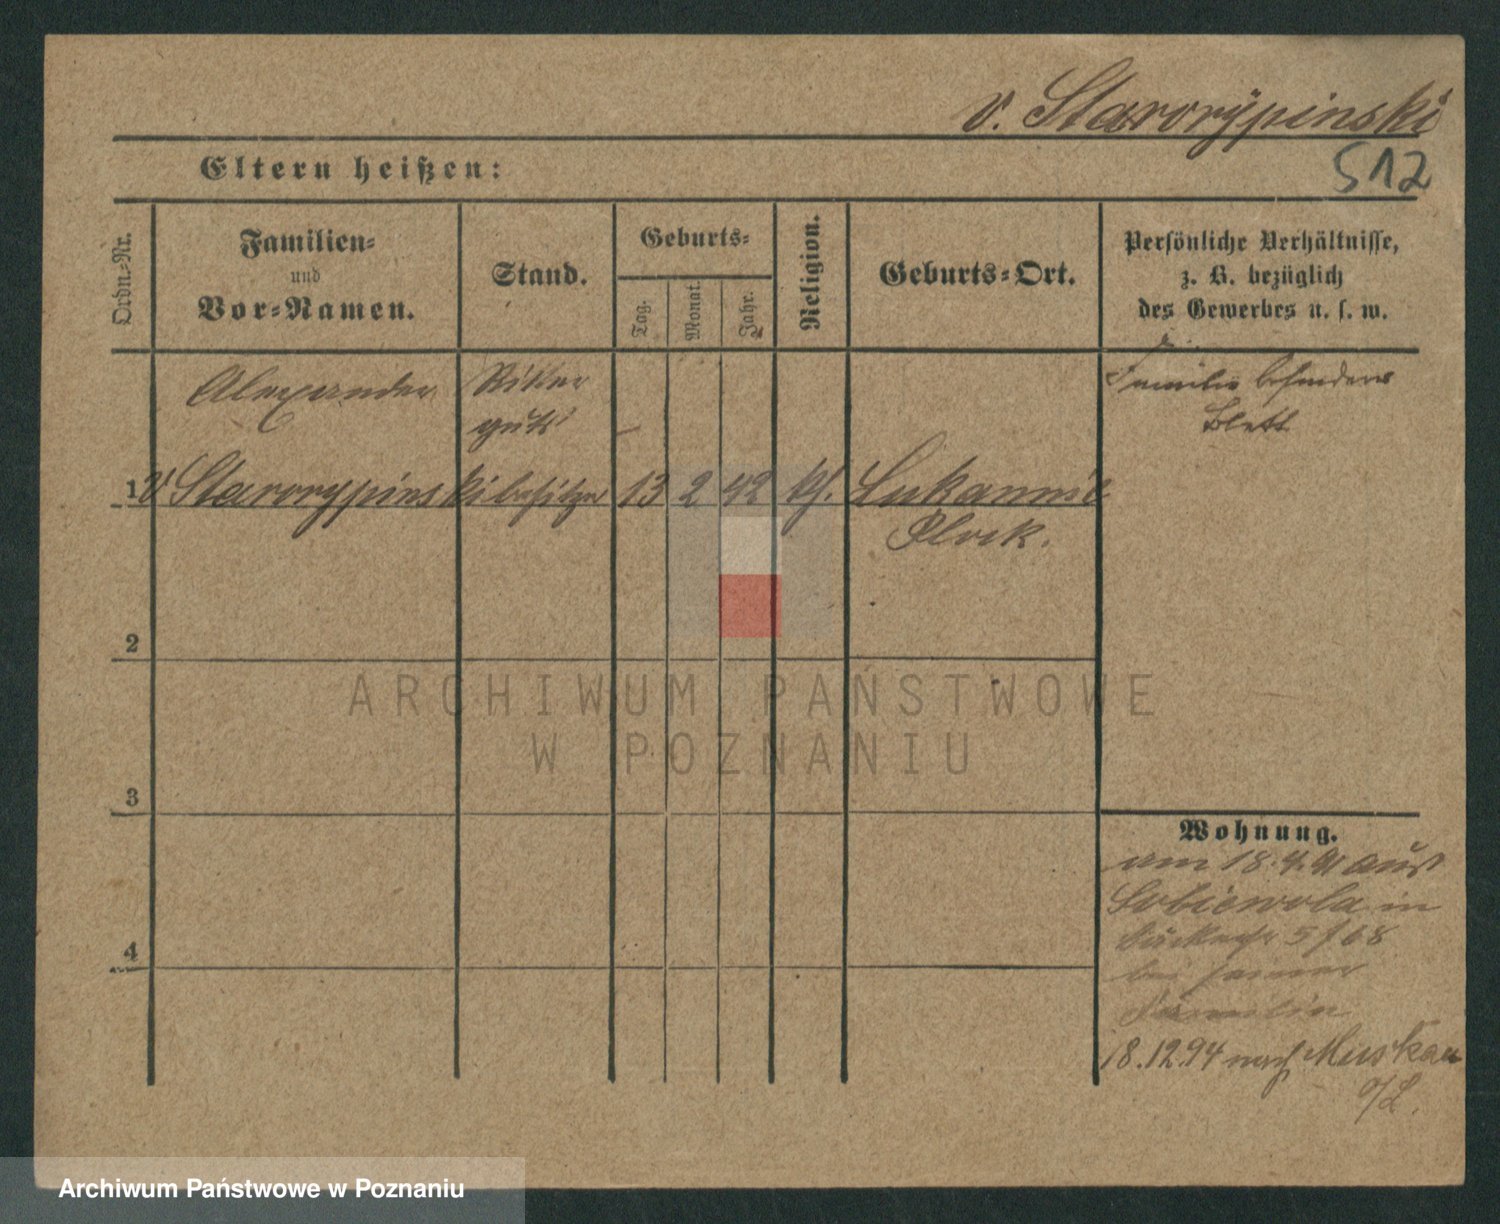 v. Starorypinski
512
Eltern heißen:
Ordn.-Nr.
Familien-
und
Vor-Namen.
Stand.
Geburts-
Tag.
Monat.
Jahr.
Religion.
Geburts-Ort.
Persönliche Verhältnisse,
z. B. bezüglich
des Gewerbes u. s. w.
Alexander
Ritter
guts
Familie besonderes
Blatt
1 v Starorypinski besitzer 13 2 42 kth. Lukomnie
Plock.
2
3
4
Wohnung.
am 18.4.91 aus
Sobiewola in
5/68
bei seiner
Familie
18.12.94 nach Muskau
o/L.
ARCHIWUM PAŃSTWOWE
W POZNANIU
Archiwum Państwowe w Poznaniu